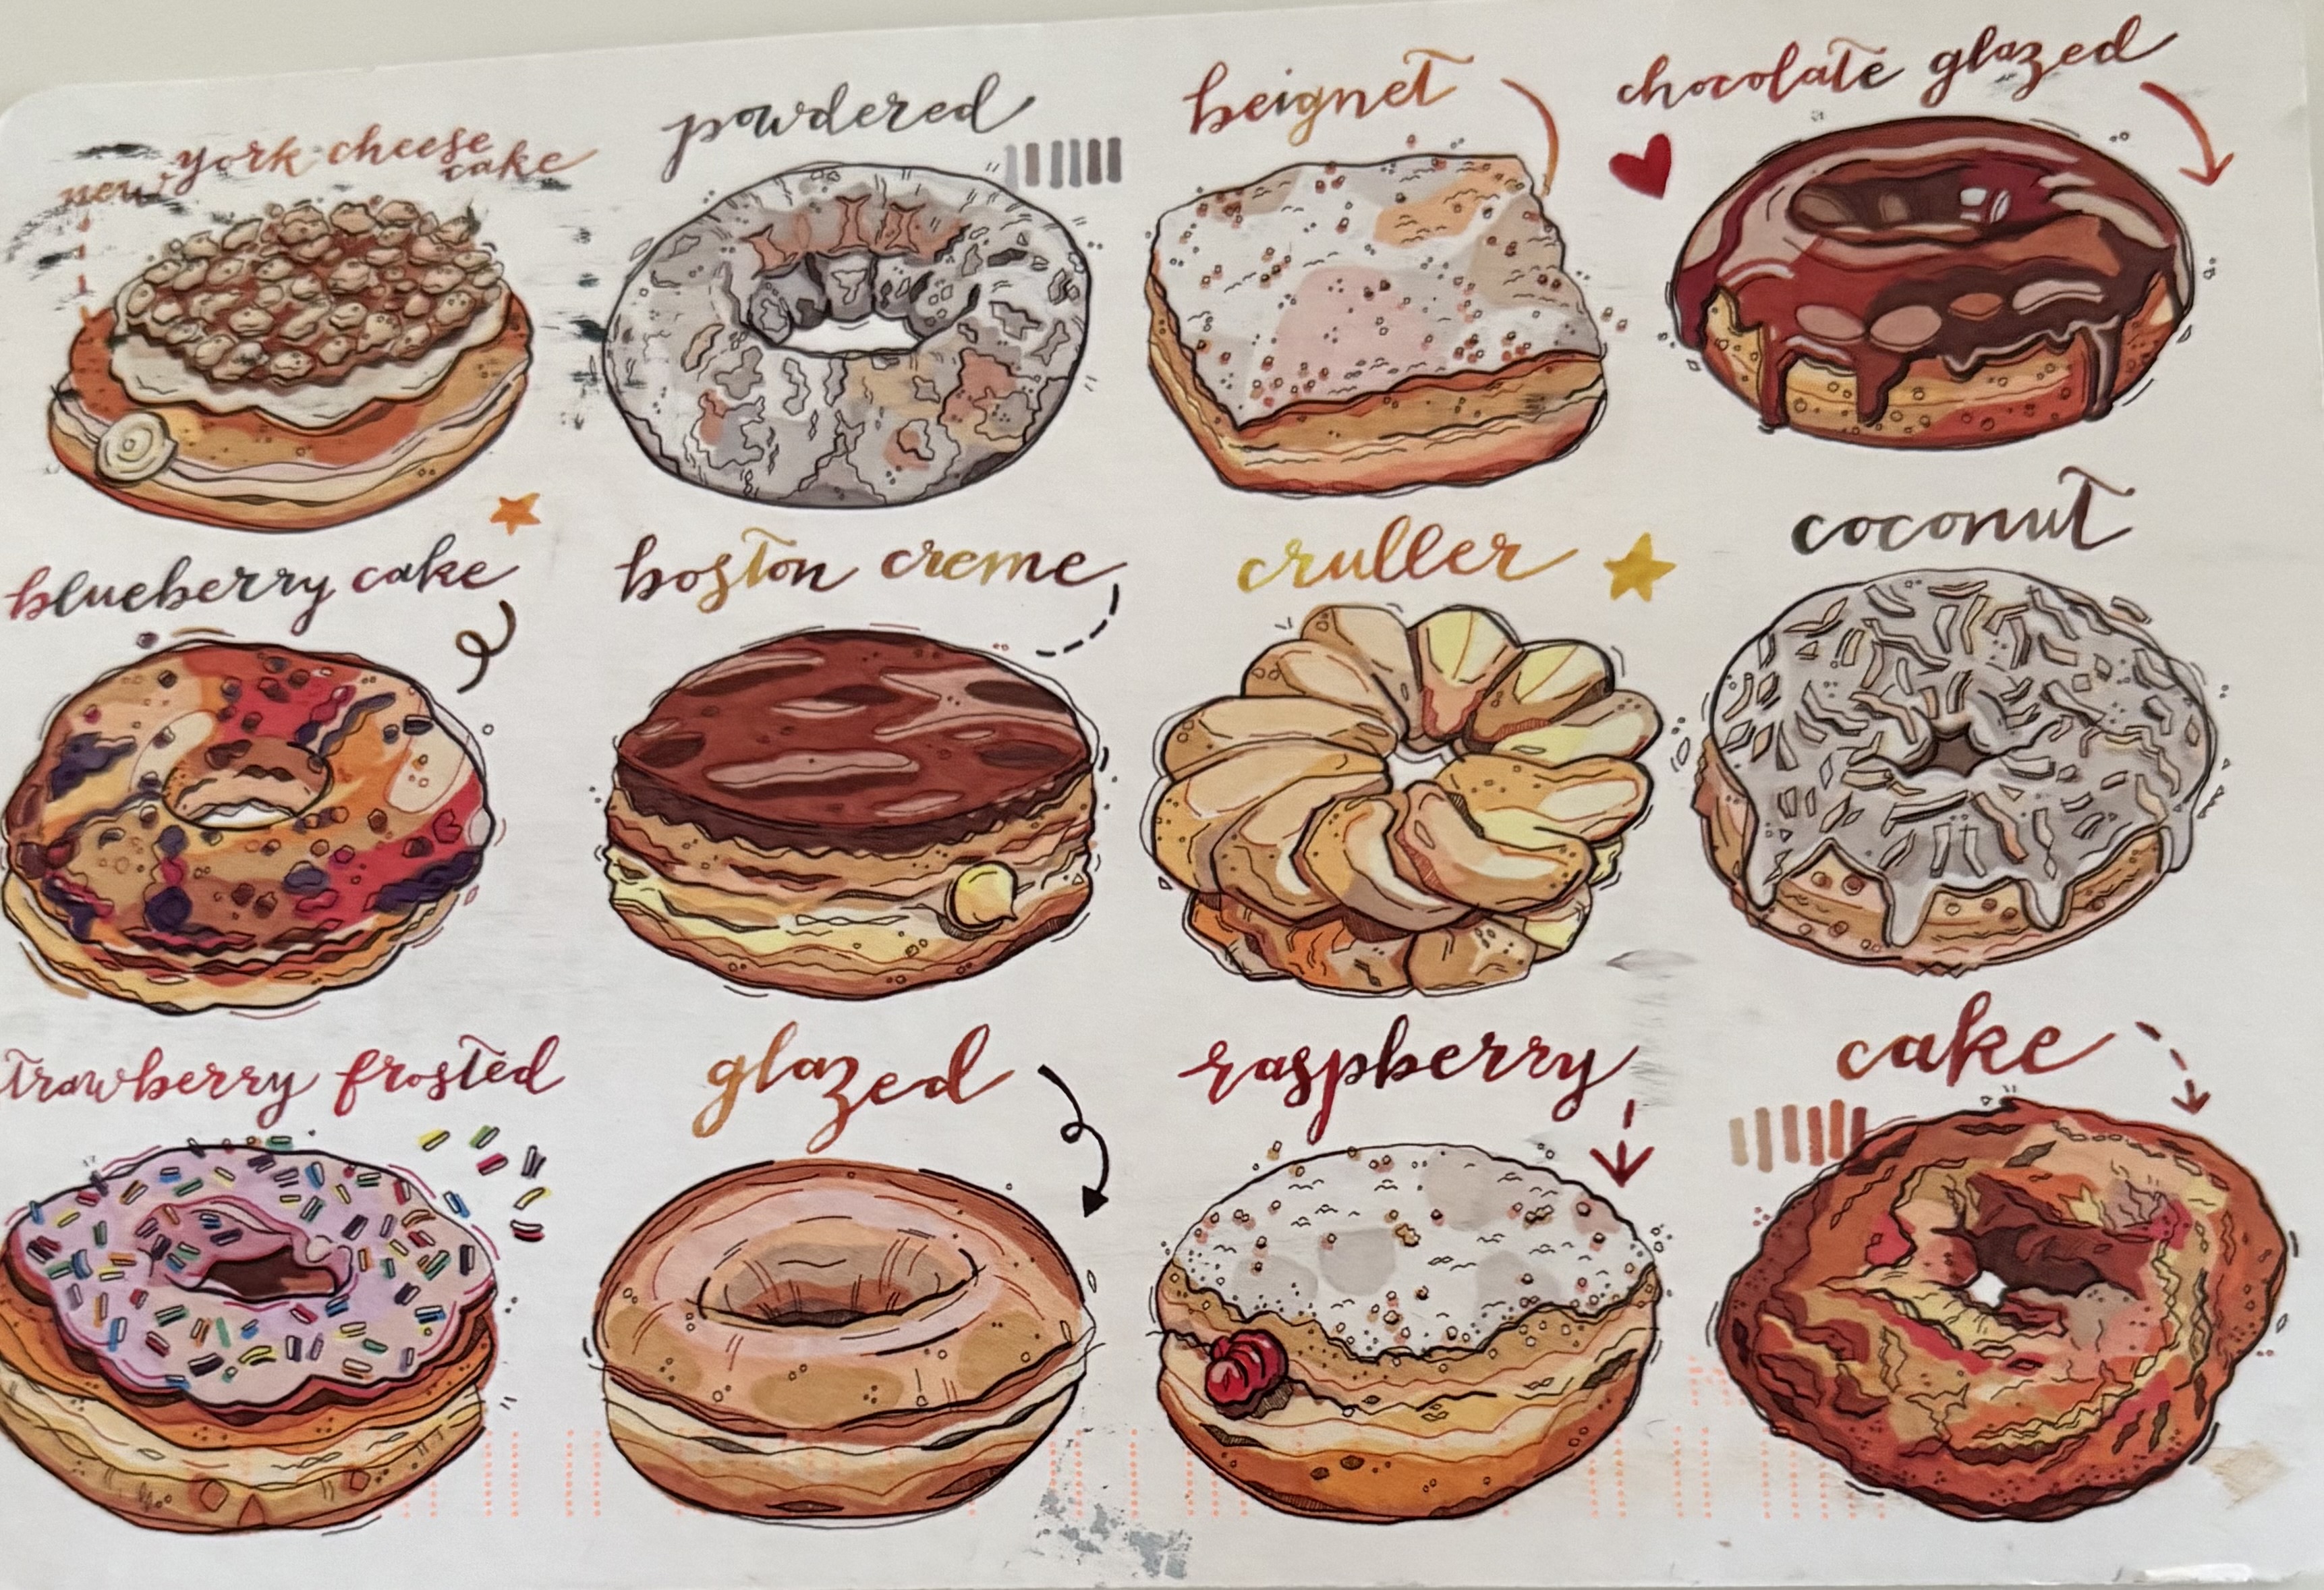 new york cheese
cake
powdered
beignet
chocolate glazed
blueberry cake
boston creme
cruller
coconut
trawberry frosted
glazed
raspberry
cake